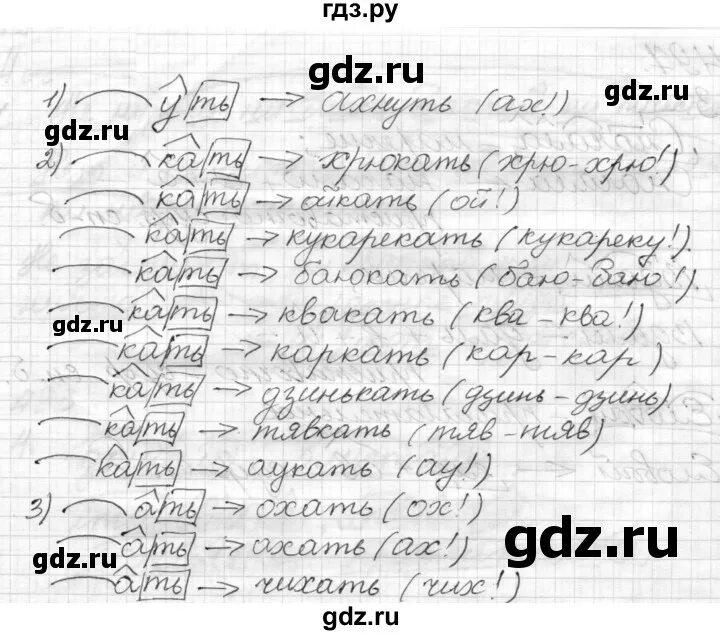 гдз.ру
gdz.ru
1) уть → ахнуть (ах!)
gdz.ru
2) кать → хрюкать (хрю-хрю!)
gdz.ru
кать → ойкать (ой!)
кать → кукарекать (кукареку!).
кать → баюкать (баю-баю!).
кать → квакать (ква-ква!)
gdz.ru
кать → каркать (кар-кар)
кать → дзинькать (дзинь-дзинь)
кать → тявкать (тяв-тяв)
кать → аукать (ау!)
3) ать → охать (ох!)
gdz.ru
gdz.ru
ать → ахать (ах!)
ать → чихать (чих!)
gdz.ru